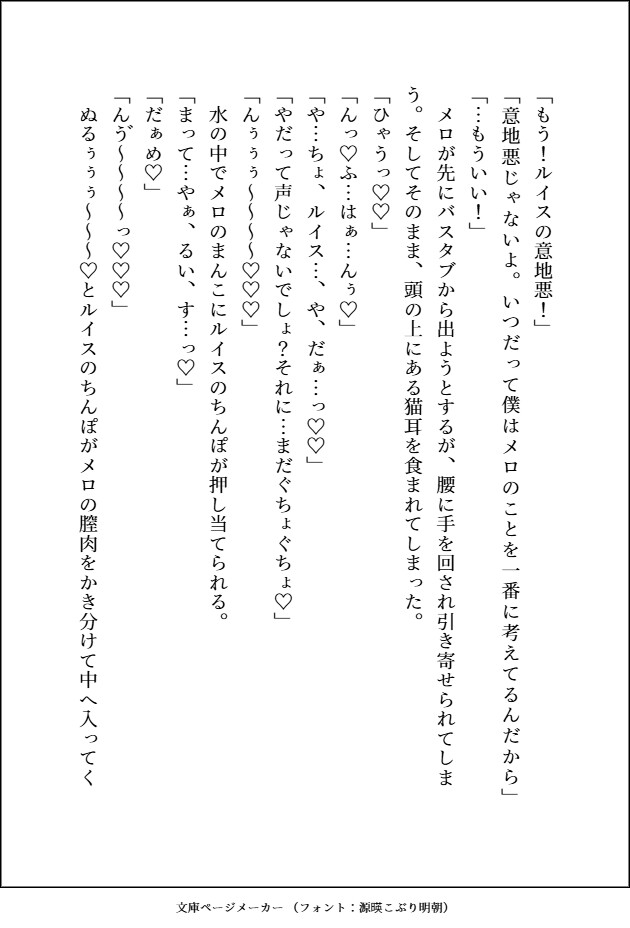 「もう！ルイスの意地悪！」
「意地悪じゃないよ。いつだって僕はメロのことを一番に考えてるんだから」
「…もういい！」
メロが先にバスタブから出ようとするが、腰に手を回され引き寄せられてしま
う。そしてそのまま、頭の上にある猫耳を食まれてしまった。
「ひゃうっ♡♡」
「んっ♡ふ…はぁ…んぅ♡」
「や…ちょ、ルイス…、や、だぁ…っ♡♡」
「やだって声じゃないでしょ？それに…まだぐちょぐちょ♡」
「んぅぅぅ〜〜〜〜♡♡♡」
水の中でメロのまんこにルイスのちんぽが押し当てられる。
「まって…やぁ、るい、す…っ♡」
「だぁめ♡」
「んゔ〜〜〜〜っ♡♡♡」
ぬるぅぅぅ〜〜〜♡とルイスのちんぽがメロの膣肉をかき分けて中へ入ってく
文庫ページメーカー（フォント：源暎こぶり明朝）